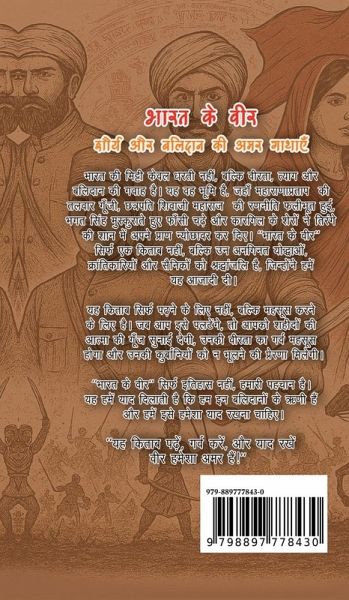 भारत के वीर
शौर्य और बलिदान की अमर गाथाएँ
भारत की मिट्टी केवल धरती नहीं, बल्कि वीरता, त्याग और
बलिदान की गवाह है। यह वह भूमि है, जहाँ महाराणाप्रताप की
तलवार गूँजी, छत्रपति शिवाजी महाराज की रणनीति फलीभूत हुई,
भगत सिंह मुस्कुराते हुए फाँसी चढ़े और कारगिल के शेरों में तिरंगे
की शान में अपने प्राण न्योछावर कर दिए। "भारत के वीर"
सिर्फ एक किताब नहीं, बल्कि उन अनगिनत योद्धाओं,
क्रांतिकारियों और सैनिकों को श्रद्धांजलि है, जिन्होंने हमें
यह आजादी दी।
यह किताब सिर्फ पढ़ने के लिए नहीं, बल्कि महसूस करने
के लिए है। जब आप इसे पलटेंगे, तो आपको शहीदों की
आत्मा की गूँज सुनाई देगी, उनकी वीरता का गर्व महसूस
होगा और उनकी कुर्बानियों को न भूलने की प्रेरणा मिलेगी।
"भारत के वीर" सिर्फ इतिहास नहीं, हमारी पहचान है।
यह हमें याद दिलाती है कि हम इन बलिदानों के ऋणी हैं
और हमें इसे हमेशा याद रखना चाहिए।
"यह किताब पढ़ें, गर्व करें, और याद रखें
वीर हमेशा अमर हैं!"
979-889777843-0
9 798897 778430